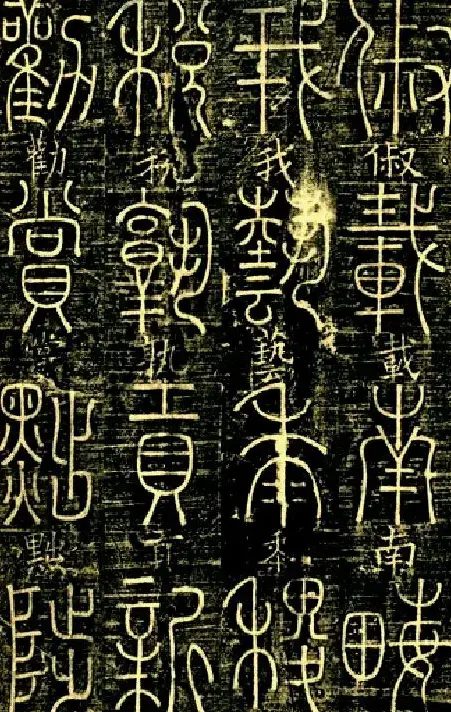 俶俶載載南南畝
我我藝藝黍黍稷
稅稅孰孰貢貢新
勸勸賞賞黜黜陟